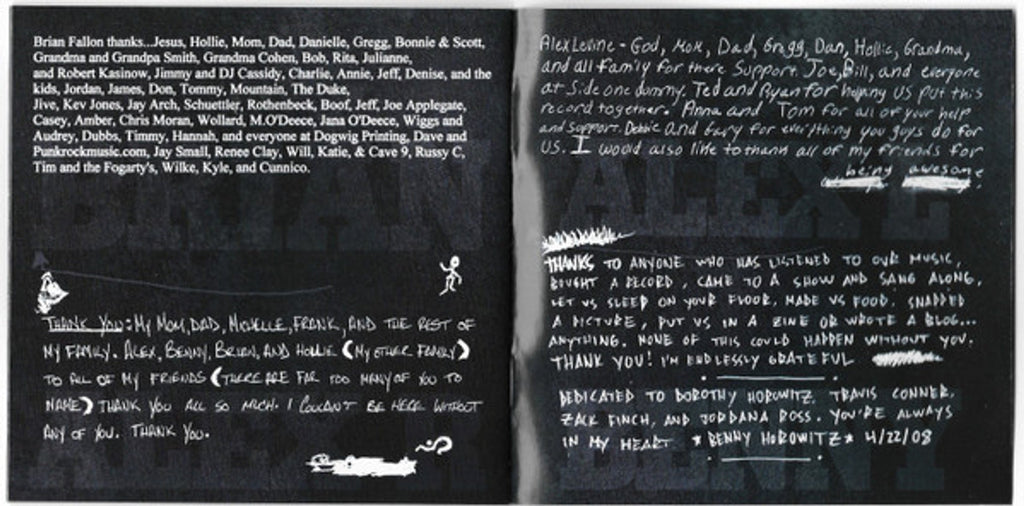 Brian Fallon thanks...Jesus, Hollie, Mom, Dad, Danielle, Gregg, Bonnie & Scott,
Grandma and Grandpa Smith, Grandma Cohen, Bob, Rita, Julianne,
and Robert Kasinow, Jimmy and DJ Cassidy, Charlie, Annie, Jeff, Denise, and the
kids, Jordan, James, Don, Tommy, Mountain, The Duke,
Jive, Kev Jones, Jay Arch, Schuettler, Rothenbeck, Boof, Jeff, Joe Applegate,
Casey, Amber, Chris Moran, Wollard, M.O'Deece, Jana O'Deece, Wiggs and
Audrey, Dubbs, Timmy, Hannah, and everyone at Dogwig Printing, Dave and
Punkrockmusic.com, Jay Small, Renee Clay, Will, Katie, & Cave 9, Russy C,
Tim and the Fogarty's, Wilke, Kyle, and Cunnico.
BRIAN
THANK YOU: MY MOM, DAD, MICHELLE, FRANK, AND THE REST OF
MY FAMILY. ALEX, BENNY, BRIAN, AND HOLLIE (MY OTHER FAMILY)
TO ALL OF MY FRIENDS (THERE ARE FAR TOO MANY OF YOU TO
NAME) THANK YOU ALL SO MUCH. I COULDN'T BE HERE WITHOUT
ANY OF YOU. THANK YOU.
Alex Levine - God, Mom, Dad, Gregg, Dan, Hollie, Grandma,
and all family for there support. Joe, Bill, and everyone
at Side one dummy. Ted and Ryan for helping us put this
record together. Anna and Tom for all of your help
and support. Debbie and Gary for everything you guys do for
us. I would also like to thank all of my friends for
being awesome.
ALEX L
THANKS TO ANYONE WHO HAS LISTENED TO OUR MUSIC,
BOUGHT A RECORD, CAME TO A SHOW AND SANG ALONG,
LET US SLEEP ON YOUR FLOOR, MADE US FOOD, SNAPPED
A PICTURE, PUT US IN A ZINE OR WROTE A BLOG...
ANYTHING. NONE OF THIS COULD HAPPEN WITHOUT YOU.
THANK YOU! I'M ENDLESSLY GRATEFUL
DEDICATED TO DOROTHY HOROWITZ, TRAVIS CONNER,
ZACK FINCH, AND JORDANA ROSS. YOU'RE ALWAYS
IN MY HEART * BENNY HOROWITZ * 4/22/08
BENNY